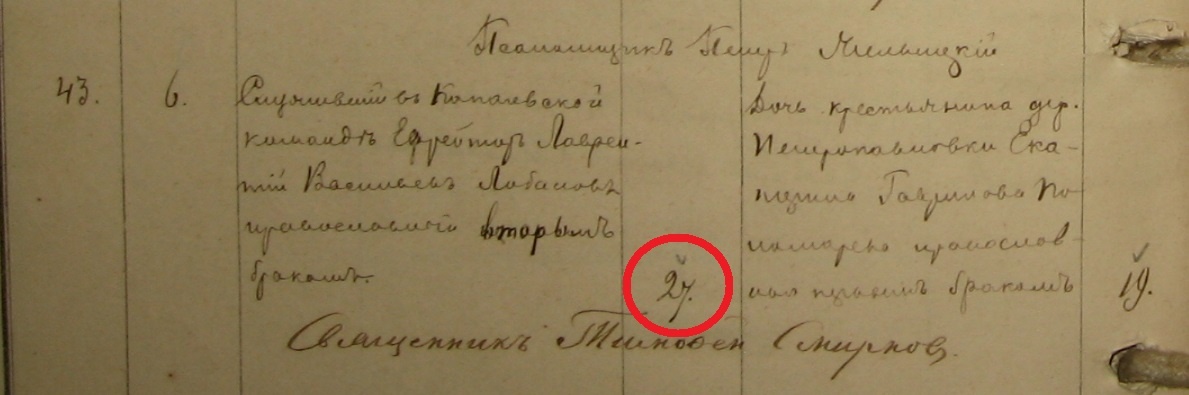 Псаломщикъ Петръ Мильвицкій
43. 6. Служившій въ Копаевской
командѣ Ефрейторъ Лаврен-
тій Васильевъ Лобановъ
православнаго вторымъ
бракомъ. 27.
Дочь крестьянина дер.
Петропавловки Ека-
терина Гаврилова По
номарева православ-
ная первымъ бракомъ 19.
Священникъ Тимофей Смирновъ.